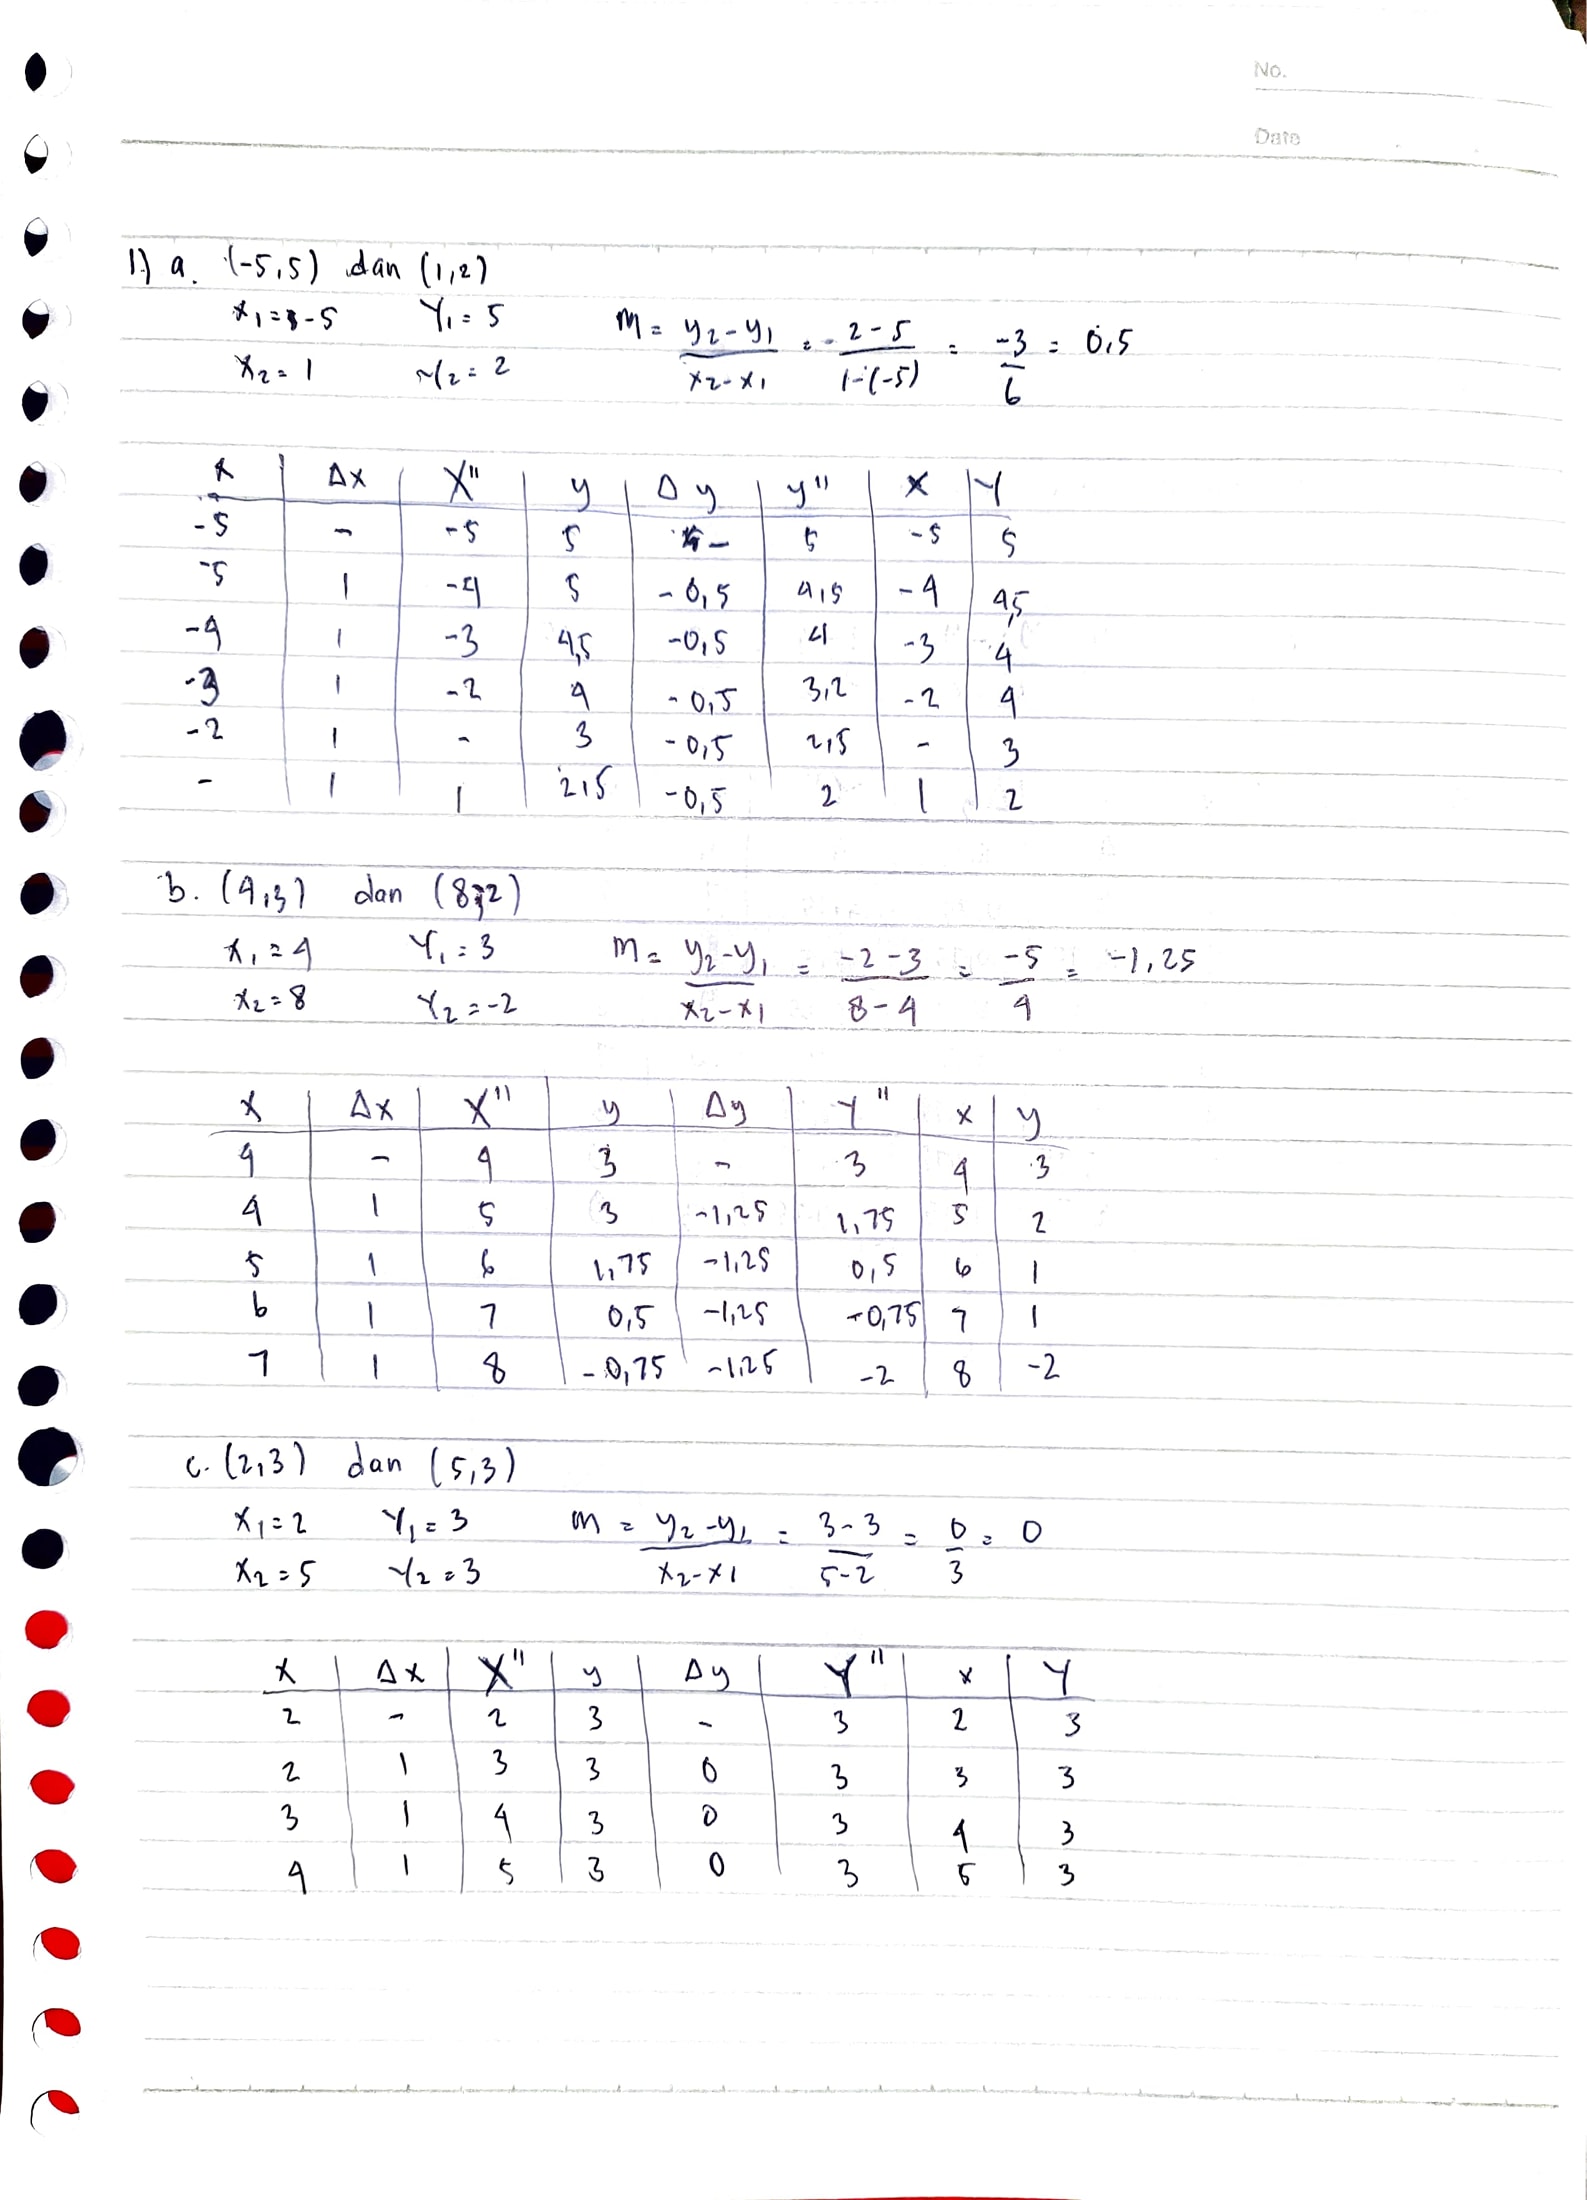 No.
Date
1) a. (-5,5) dan (1,2)
x₁ = -5 Y₁ = 5 m = y₂-y₁/x₂-x₁ = 2-5/1-(-5) = -3/6 = 0,5
x₂ = 1 Y₂ = 2
x Δx X" y Δy y" x Y
-5 - -5 5 - 5 -5 5
-5 1 -4 5 -0,5 4,5 -4 4,5
-4 1 -3 4,5 -0,5 4 -3 4
-3 1 -2 4 -0,5 3,2 -2 4
-2 1 - 3 -0,5 2,5 - 3
- 1 1 2,5 -0,5 2 1 2
b. (4,3) dan (8,2)
x₁ = 4 Y₁ = 3 m = y₂-y₁/x₂-x₁ = -2-3/8-4 = -5/4 = -1,25
x₂ = 8 Y₂ = -2
x Δx X" y Δy Y" x y
4 - 4 3 - 3 4 3
4 1 5 3 -1,25 1,75 5 2
5 1 6 1,75 -1,25 0,5 6 1
6 1 7 0,5 -1,25 -0,75 7 1
7 1 8 -0,75 -1,25 -2 8 -2
c. (2,3) dan (5,3)
x₁ = 2 Y₁ = 3 m = y₂-y₁/x₂-x₁ = 3-3/5-2 = 0/3 = 0
x₂ = 5 Y₂ = 3
x Δx X" y Δy Y" x Y
2 - 2 3 - 3 2 3
2 1 3 3 0 3 3 3
3 1 4 3 0 3 4 3
4 1 5 3 0 3 5 3